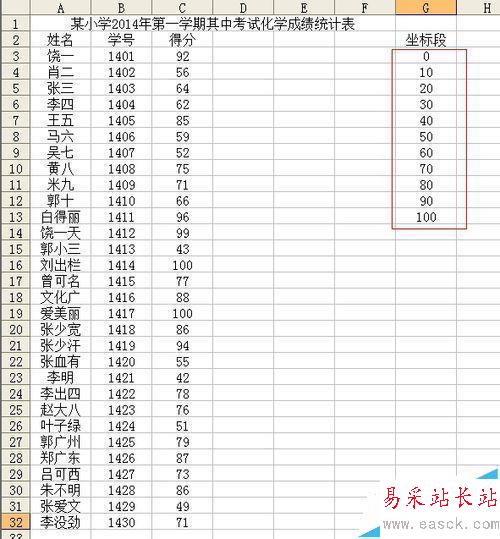 A B C D E F G H
1 某小学2014年第一学期其中考试化学成绩统计表
2 姓名 学号 得分 坐标段
3 饶一 1401 92 0
4 肖二 1402 56 10
5 张三 1403 64 20
6 李四 1404 62 30
7 王五 1405 85 40
8 马六 1406 59 50
9 吴七 1407 52 60
10 黄八 1408 75 70
11 米九 1409 71 80
12 郭十 1410 66 90
13 白得丽 1411 96 100
14 饶一天 1412 99
15 郭小三 1413 43
16 刘出栏 1414 100
17 曾可名 1415 77
18 文化广 1416 88
19 爱美丽 1417 100
20 张少宽 1418 86
21 张少汗 1419 94
22 张血有 1420 55
23 李明 1421 42
24 李出四 1422 78
25 赵大八 1423 76
26 叶子绿 1424 51
27 郭广州 1425 79
28 郑广东 1426 87
29 吕可西 1427 73
30 朱不明 1428 86
31 张爱文 1429 49
32 李没劲 1430 71
33
易采站长站
www.easck.com